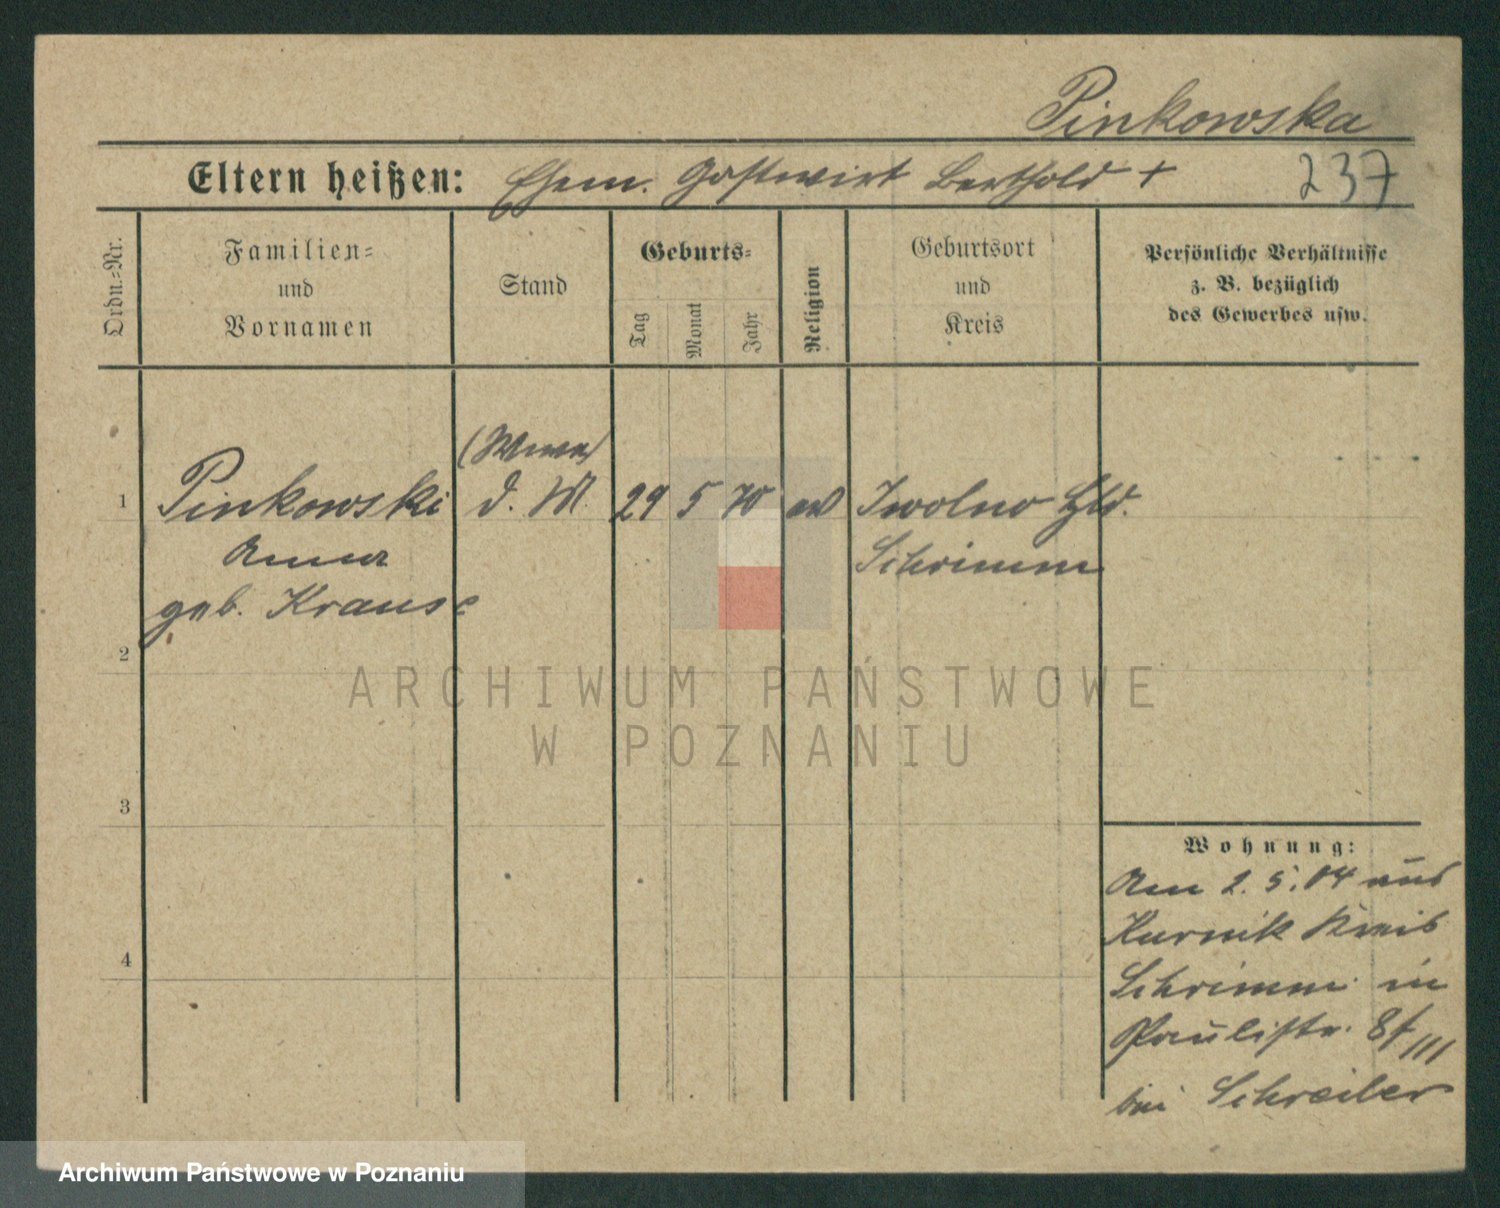 Pinkowska
Eltern heißen: Ehem. Gastwirt Berthold +
237
Ordn.=Nr.
Familien=
und
Vornamen
Stand
Geburts=
Tag
Monat
Jahr
Religion
Geburtsort
und
Kreis
Persönliche Verhältnisse
z. B. bezüglich
des Gewerbes usw.
1
Pinkowski
Anna
geb. Krause
d. W.
29 5 70
Iwolno Hld.
Schrimm
2
3
4
Wohnung:
Am 2. 5. 04 aus
Kurnik Kreis
Schrimm in
Paulistr. 8/III
bei Schreiber
ARCHIWUM PAŃSTWOWE
W POZNANIU
Archiwum Państwowe w Poznaniu